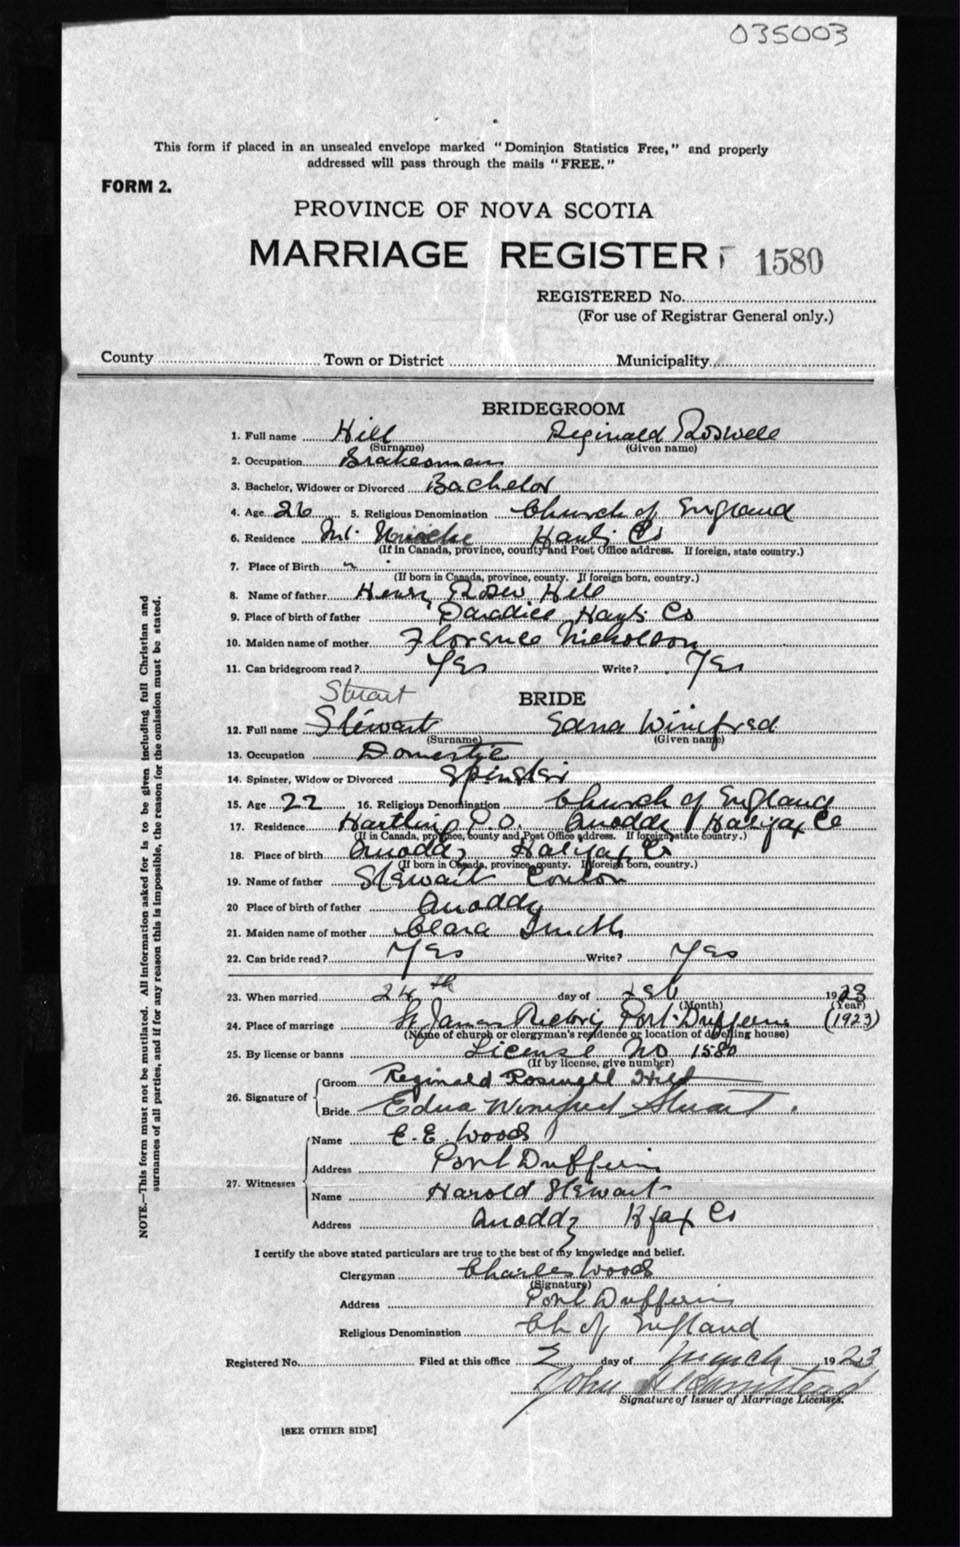 035003
This form if placed in an unsealed envelope marked "Dominion Statistics Free," and properly
addressed will pass through the mails "FREE."
FORM 2.
PROVINCE OF NOVA SCOTIA
MARRIAGE REGISTER 1580
REGISTERED No.
(For use of Registrar General only.)
County Town or District Municipality
BRIDEGROOM
1. Full name Hill Reginald Roswell
(Surname) (Given name)
2. Occupation Brakesman
3. Bachelor, Widower or Divorced Bachelor
4. Age 26 5. Religious Denomination Church of England
6. Residence Mt. Uniacke Hants Co
(If in Canada, province, county and Post Office address. If foreign, state country.)
7. Place of Birth
(If born in Canada, province, county. If foreign born, country.)
8. Name of father Henry Hill
9. Place of birth of father Paradice Hants Co
10. Maiden name of mother Florence Nicholson
11. Can bridegroom read? Yes Write? Yes
Stuart
BRIDE
12. Full name Stewart Edna Winifred
(Surname) (Given name)
13. Occupation Domestic
14. Spinster, Widow or Divorced Spinster
15. Age 22 16. Religious Denomination Church of England
17. Residence Hartling P.O. Quoddy Halifax Co
(If in Canada, province, county and Post Office address. If foreign, state country.)
18. Place of birth Quoddy Halifax Co
(If born in Canada, province, county. If foreign born, country.)
19. Name of father Stewart
20 Place of birth of father Quoddy
21. Maiden name of mother Clara Smith
22. Can bride read? Yes Write? Yes
23. When married 24th day of Feb 1923
(Month) (Year)
24. Place of marriage St James Rectory Port Dufferin (1923)
(Name of church or clergyman's residence or location of dwelling house)
25. By license or banns License No 1580
(If by license, give number)
26. Signature of
Groom Reginald Roswell Hill
Bride Edna Winifred Stuart.
27. Witnesses
Name E. E. Woods
Address Port Dufferin
Name Harold Stewart
Address Quoddy Hfax Co
I certify the above stated particulars are true to the best of my knowledge and belief.
Clergyman Charles Woods
(Signature)
Address Port Dufferin
Religious Denomination Ch of England
Registered No. Filed at this office 2 day of March 1923
John
Signature of Issuer of Marriage Licenses.
[SEE OTHER SIDE]
NOTE.—This form must not be mutilated. All information asked for is to be given including full Christian and
surnames of all parties, and if for any reason this is impossible, the reason for the omission must be stated.